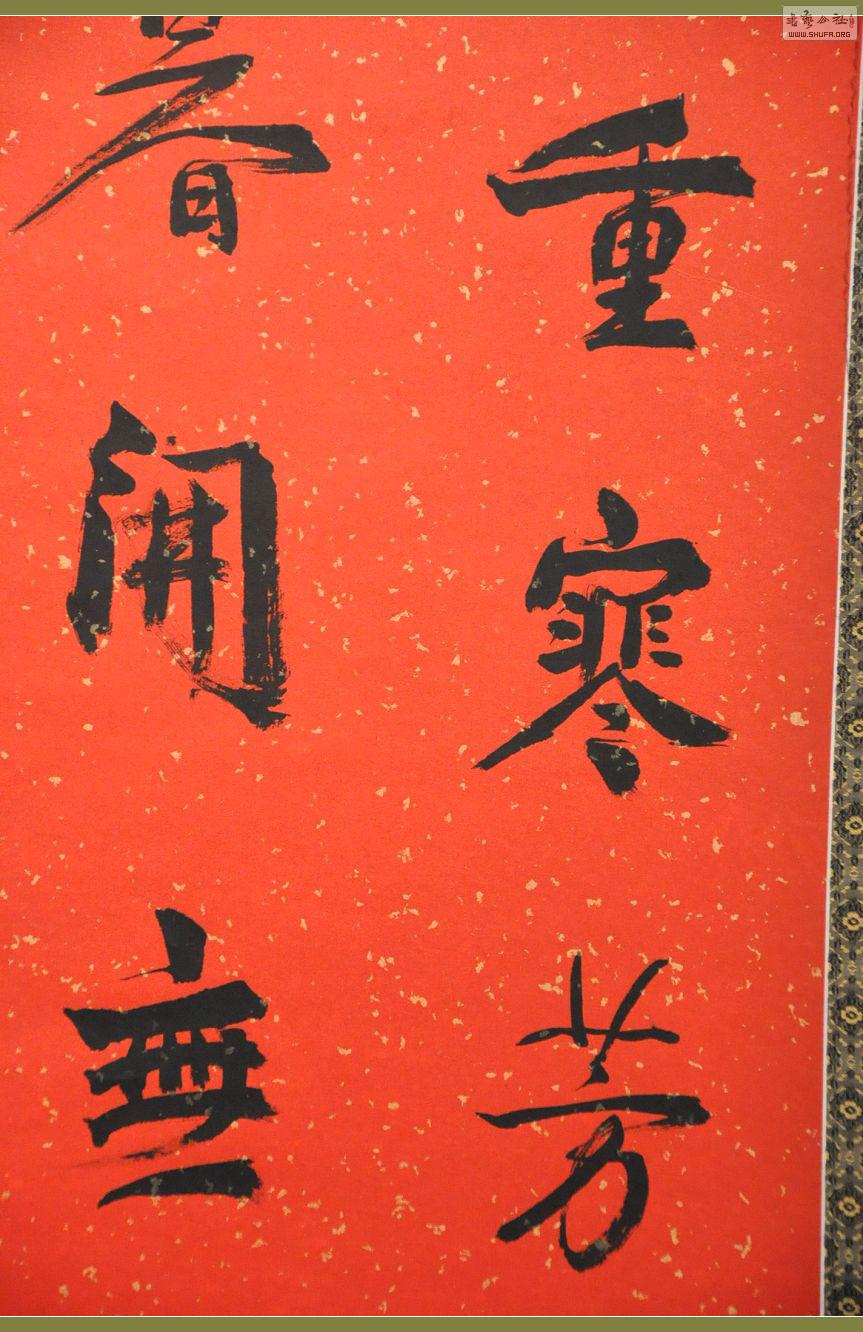 重寒芳
開無
书艺公社
WWW.SHUFA.ORG